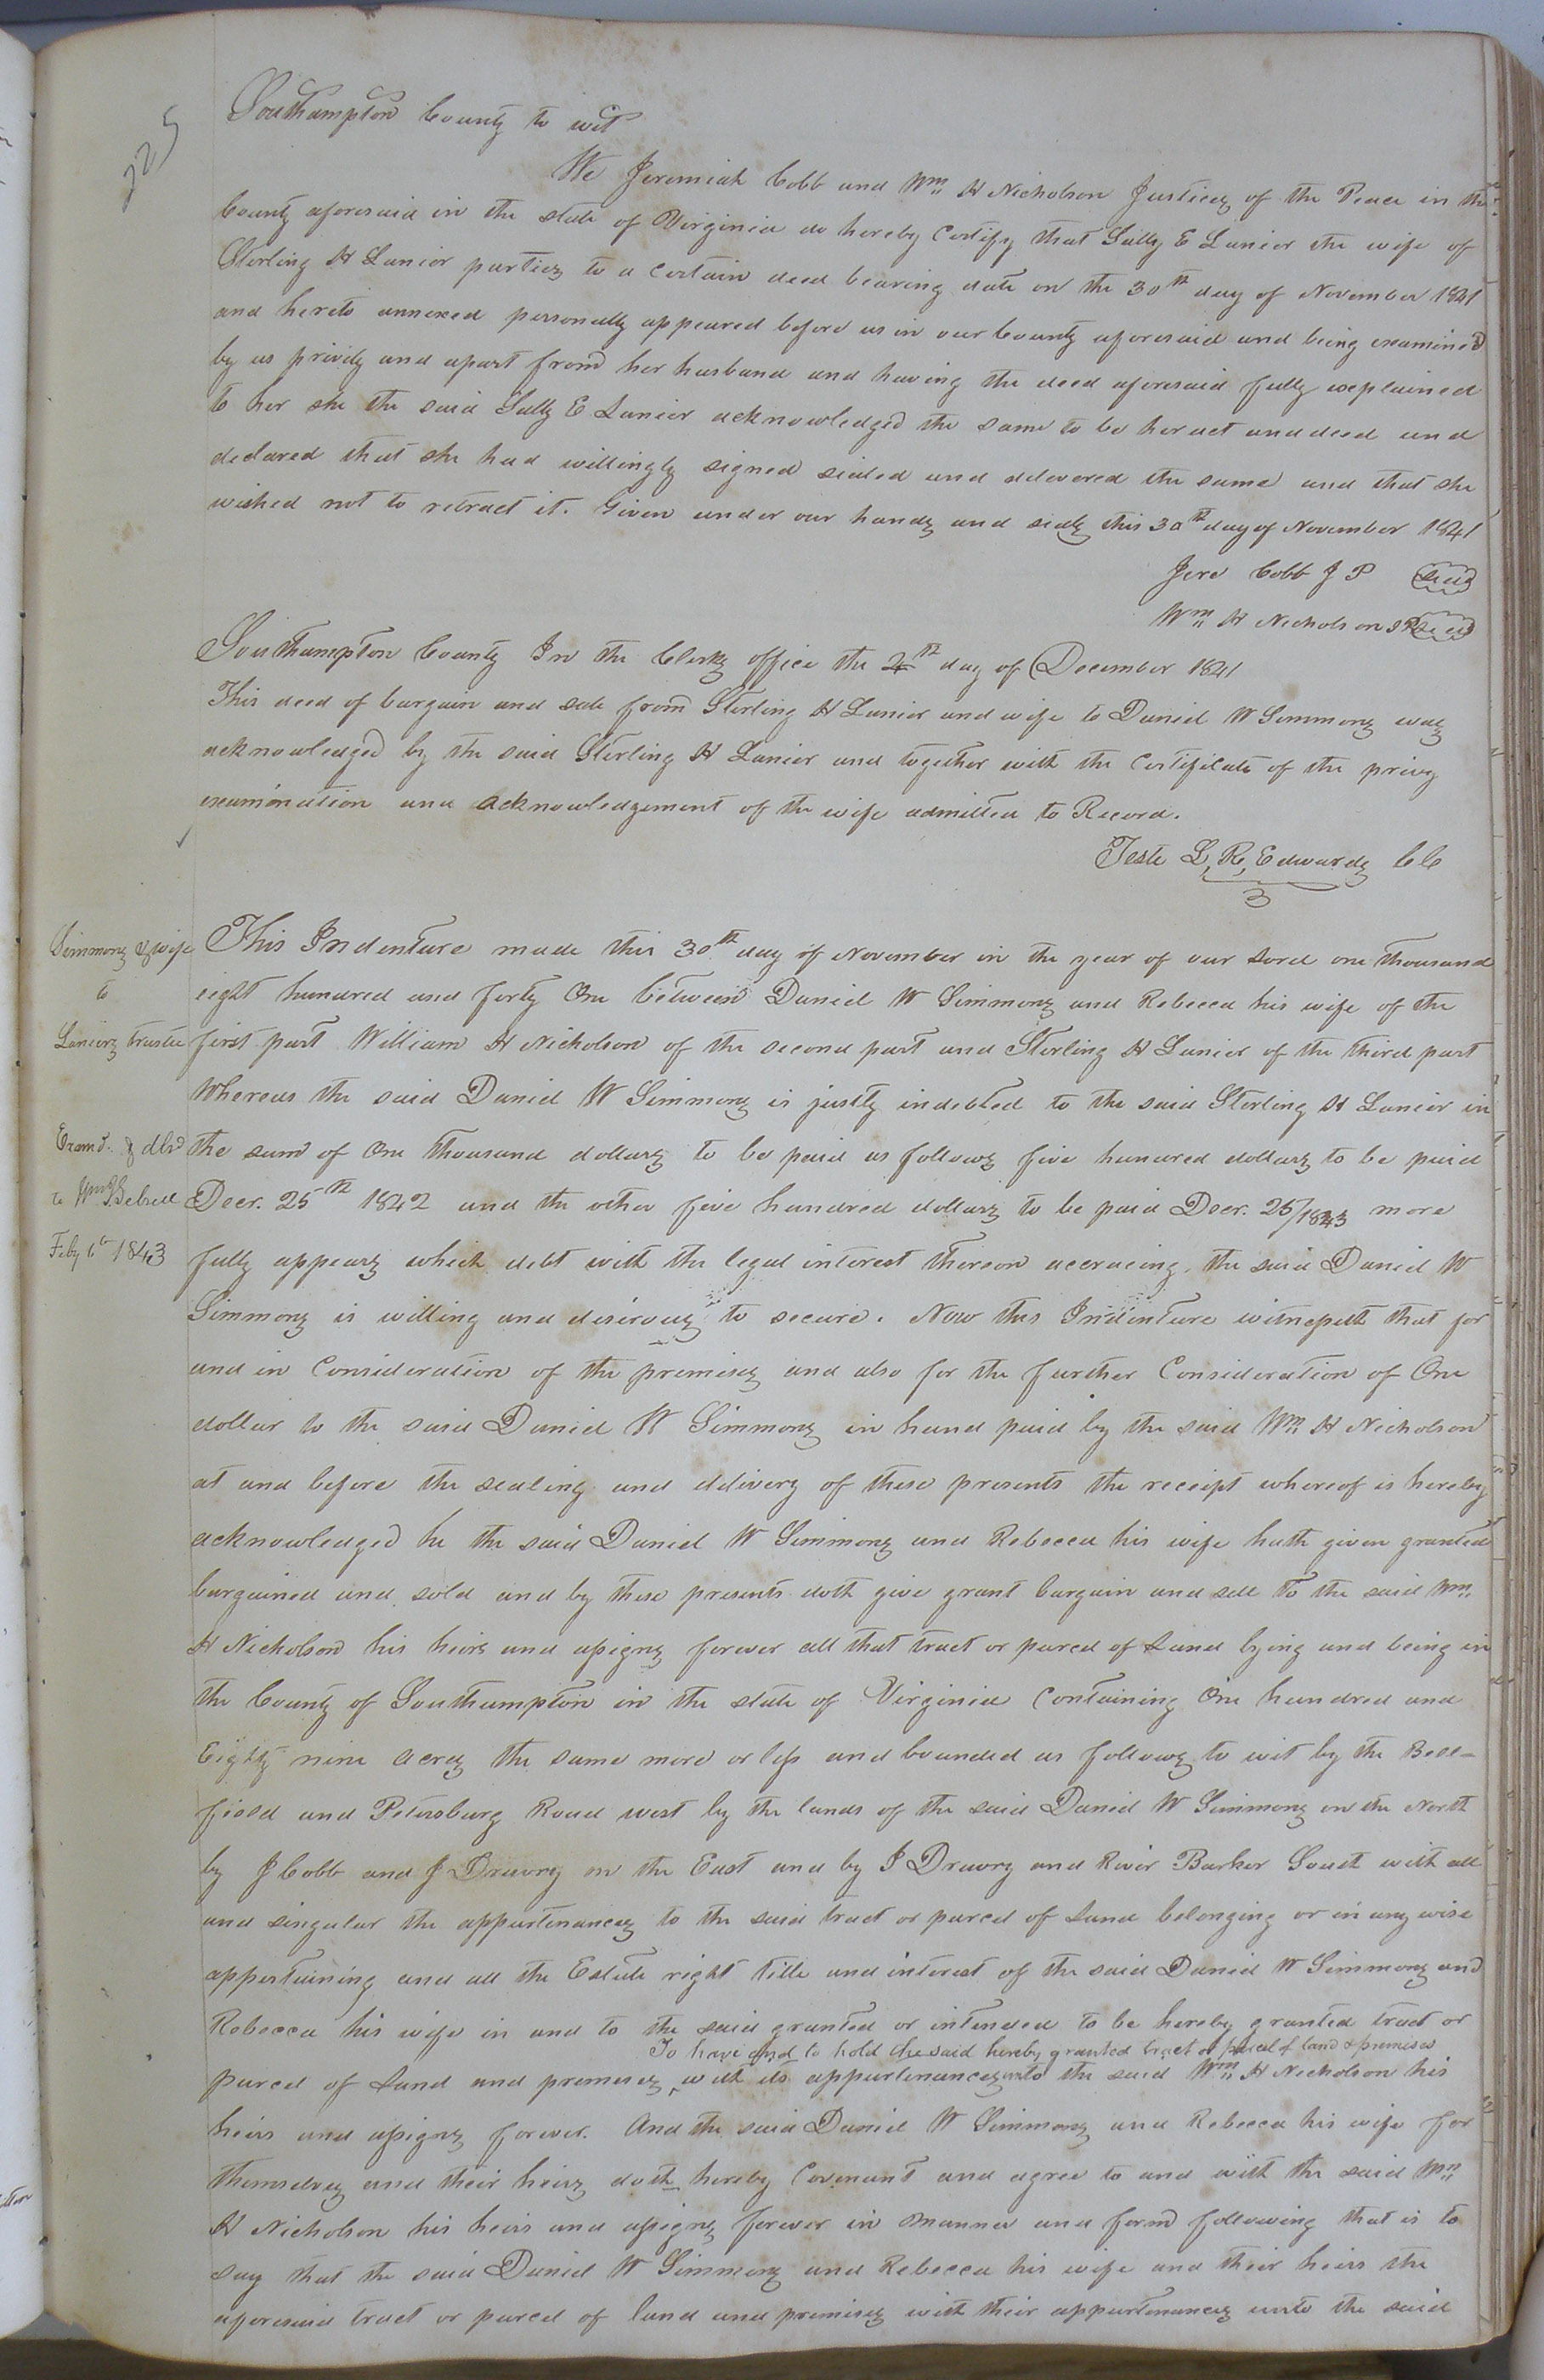 325
Southampton County to wit
We Jeremiah Cobb and Wm H Nicholson Justices of the Peace in the
County aforesaid in the state of Virginia do hereby Certify that Sally E Lanier the wife of
Sterling H Lanier parties to a Certain deed bearing date on the 30th day of November 1841
and hereto annexed personally appeared before us in our County aforesaid and being examined
by us privily and apart from her husband and having the deed aforesaid fully explained
to her she the said Sally E Lanier acknowledged the same to be her act and deed and
declared that she had willingly signed sealed and delivered the same and that she
wished not to retract it. Given under our hands and seals this 30th day of November 1841
Jere Cobb J P (Seal)
Wm H Nicholson JP (Seal)
Southampton County In the Clerks office the th day of December 1841
This deed of bargain and sale from Sterling H Lanier and wife to Daniel W Simmons was
acknowledged by the said Sterling H Lanier and together with the Certificate of the privy
examination and acknowledgement of the wife admitted to Record.
Teste L, R, Edwards CC
Simmons & wife
to
Laniers trustee
Examd. & dld
to Wm
Feby 6th 1843
This Indenture made this 30th day of November in the year of our Lord one thousand
eight hundred and forty One between Daniel W Simmons and Rebecca his wife of the
first part William H Nicholson of the second part and Sterling H Lanier of the third part
Whereas the said Daniel W Simmons is justly indebted to the said Sterling H Lanier in
the sum of One thousand dollars to be paid as follows five hundred dollars to be paid
Decr. 25th 1842 and the other five hundred dollars to be paid Decr. 25/1843 more
fully appears which debt with the legal interest thereon accrueing, the said Daniel W
Simmons is willing and desirous to secure. Now this Indenture witnesseth that for
and in Consideration of the premises and also for the further Consideration of One
dollar to the said Daniel W Simmons in hand paid by the said Wm H Nicholson
at and before the sealing and delivery of these presents the receipt whereof is hereby
acknowledged he the said Daniel W Simmons and Rebecca his wife hath given granted
bargained and sold and by these presents doth give grant bargain and sell To the said Wm
H Nicholson his heirs and assigns forever all that tract or parcel of Land lying and being in
the County of Southampton in the state of Virginia Containing One hundred and
Eighty nine acres the same more or less and bounded as follows to wit by the Bell-
field and Petersburg Road west by the lands of the said Daniel W Simmons on the North
by J Cobb and J Drewry on the East and by J Drewry and River Barker South with all
and singular the appurtenances to the said tract or parcel of Land belonging or in any wise
appertaining and all the Estate right title and interest of the said Daniel W Simmons and
Rebecca his wife in and to the said granted or intended to be hereby granted tract or
To have and to hold the said hereby granted tract or parcel of land & premises
parcel of Land and premises, with its appurtenances unto the said Wm H Nicholson his
heirs and assigns forever. And the said Daniel W Simmons and Rebecca his wife for
themselves and their heirs doth hereby Covenant and agree to and with the said Wm
H Nicholson his heirs and assigns forever in manner and form following that is to
say that the said Daniel W Simmons and Rebecca his wife and their heirs the
aforesaid tract or parcel of land and premises with their appurtenances unto the said